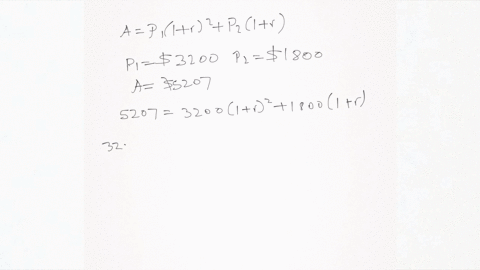 A = P₁(1+r)² + P₂(1+r)
P₁ = $3200 P₂ = $1800
A = $5207
5207 = 3200(1+r)² + 1800(1+r)
32.